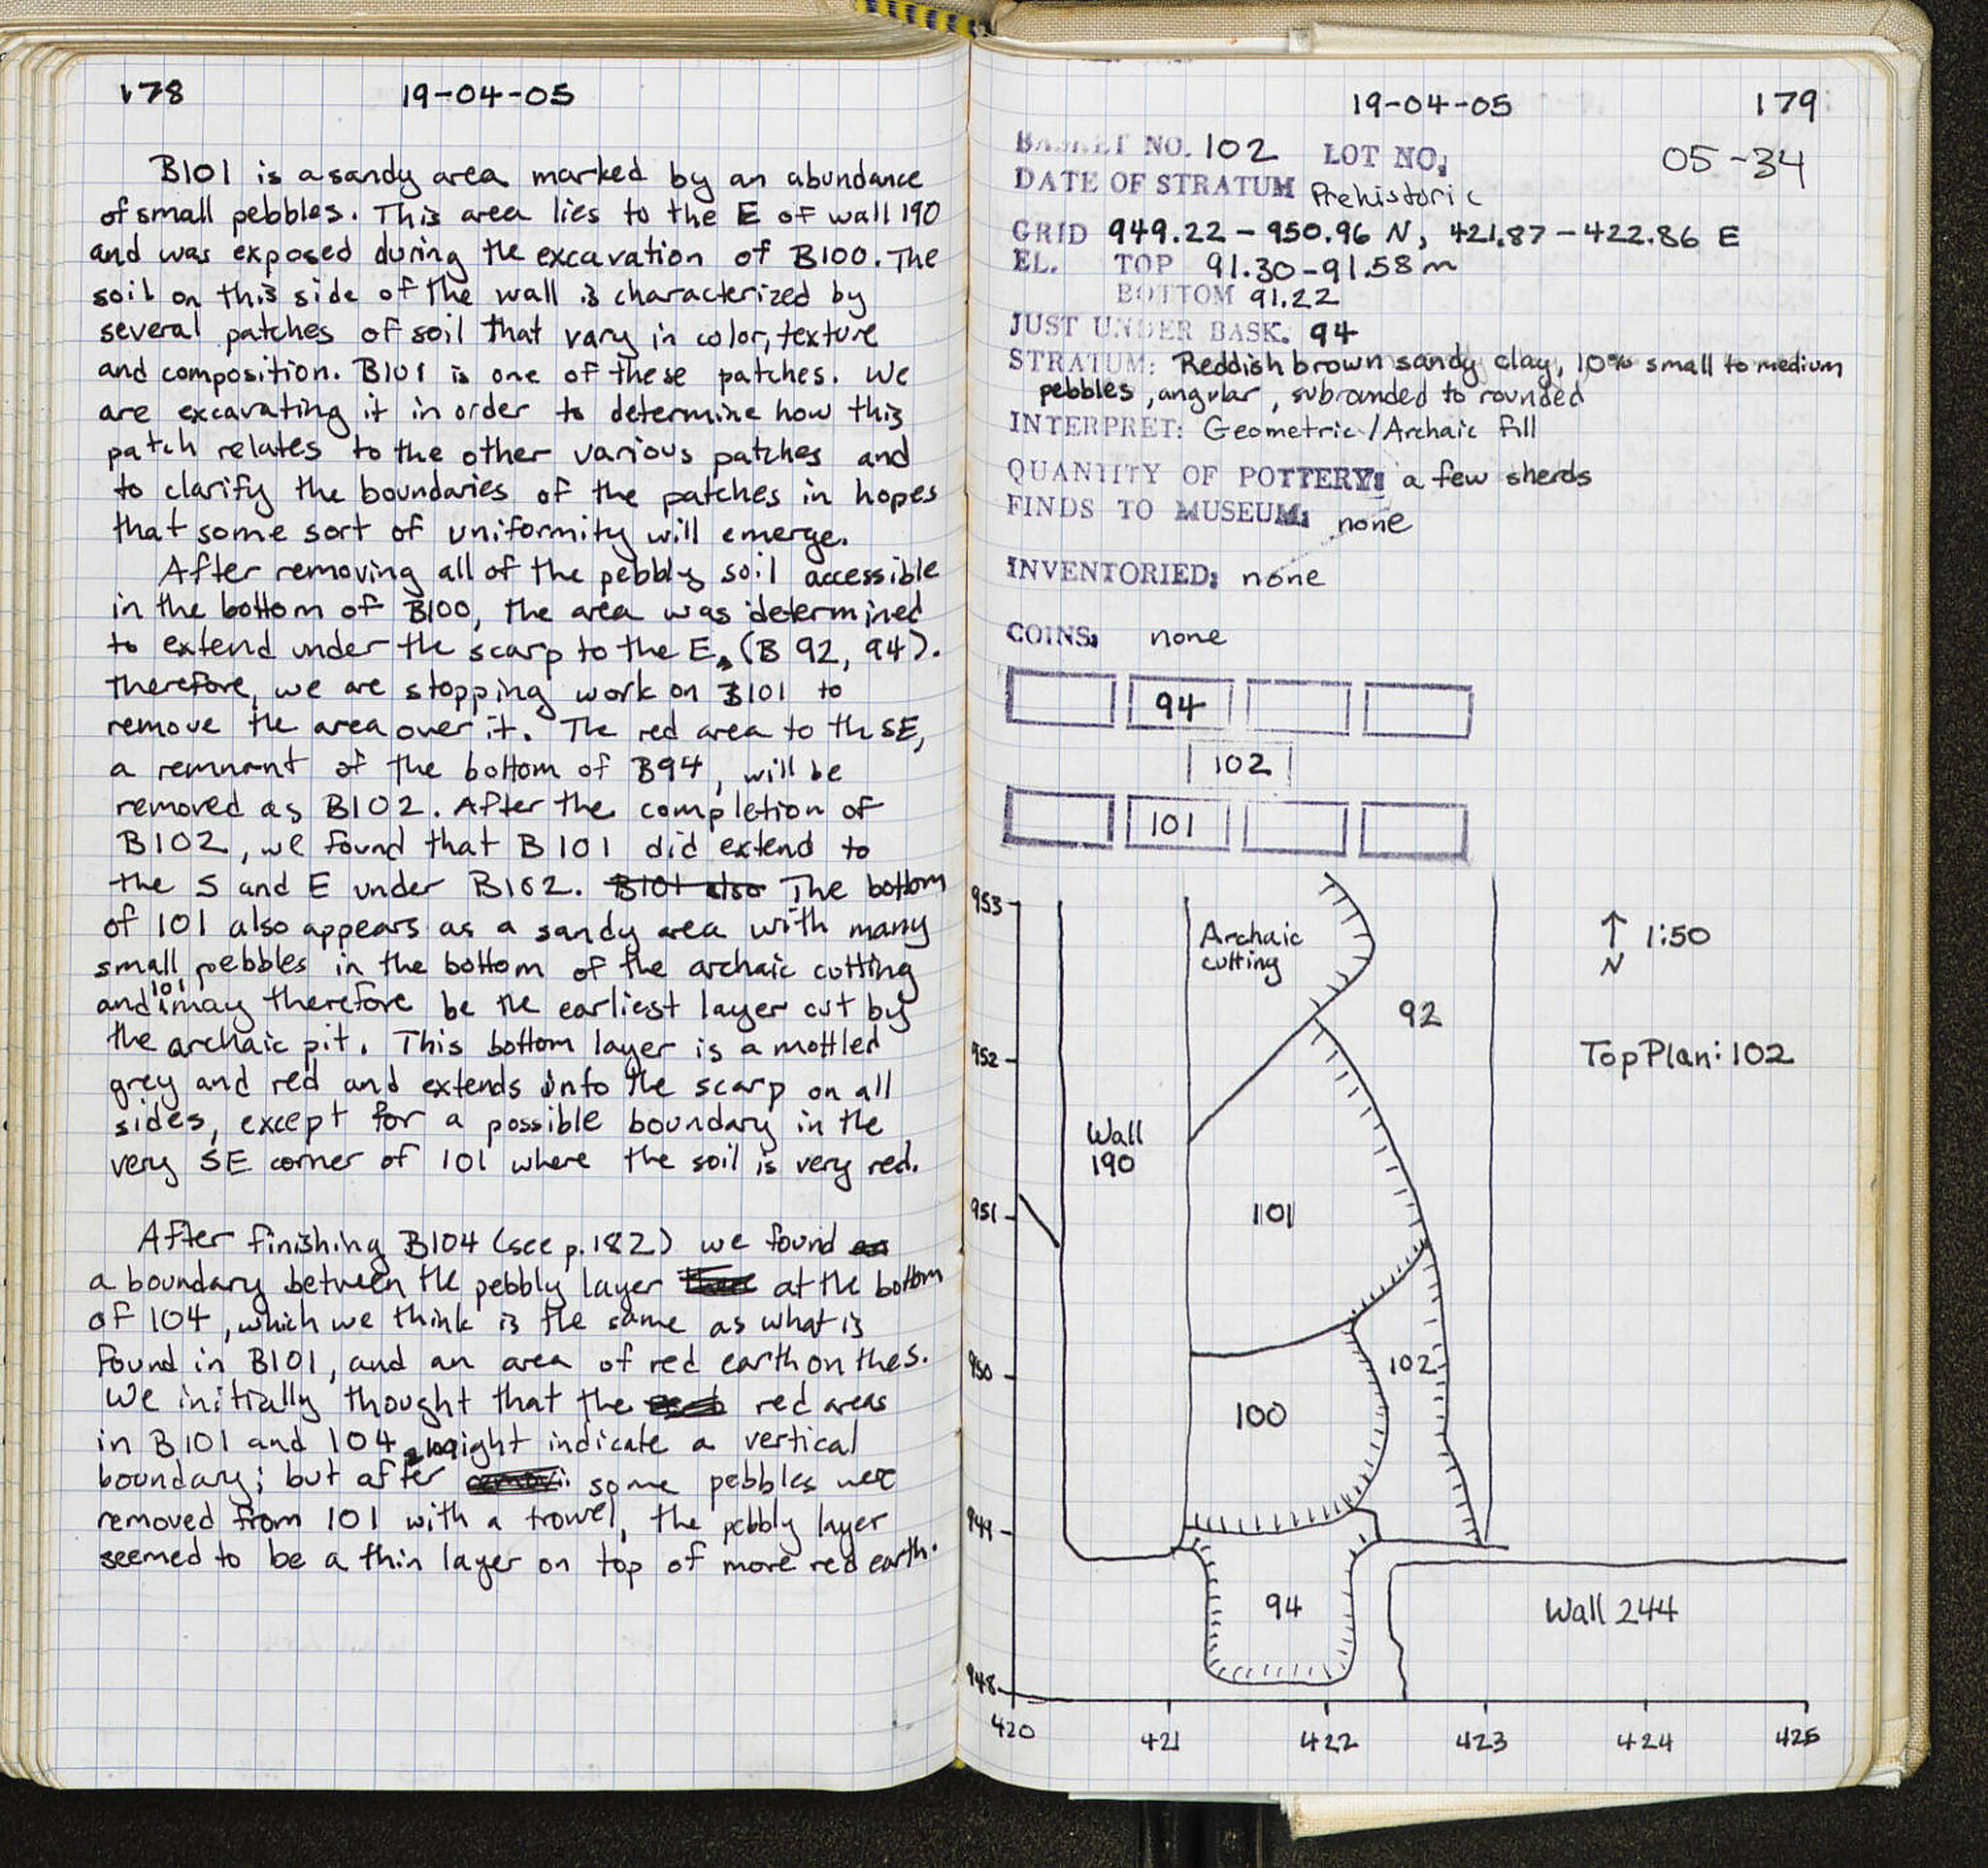 178 19-04-05
B101 is a sandy area marked by an abundance
of small pebbles. This area lies to the E of wall 190
and was exposed during the excavation of B100. The
soil on this side of the wall is characterized by
several patches of soil that vary in color, texture
and composition. B101 is one of these patches. We
are excavating it in order to determine how this
patch relates to the other various patches and
to clarify the boundaries of the patches in hopes
that some sort of uniformity will emerge.
After removing all of the pebbly soil accessible
in the bottom of B100, the area was determined
to extend under the scarp to the E, (B 92, 94).
therefore, we are stopping work on B101 to
remove the area over it. The red area to the SE,
a remnant of the bottom of B94, will be
removed as B102. After the completion of
B102, we found that B101 did extend to
the S and E under B102. B101 also The bottom
of 101 also appears as a sandy area with many
small pebbles in the bottom of the archaic cutting
and 101 may therefore be the earliest layer cut by
the archaic pit. This bottom layer is a mottled
grey and red and extends into the scarp on all
sides, except for a possible boundary in the
very SE corner of 101 where the soil is very red.
After finishing B104 (see p. 182) we found
a boundary between the pebbly layer at the bottom
of 104, which we think is the same as what is
found in B101, and an area of red earth on the S.
We initially thought that the red areas
in B101 and 104 might indicate a vertical
boundary; but after some pebbles were
removed from 101 with a trowel, the pebbly layer
seemed to be a thin layer on top of more red earth.
19-04-05 179
BASKET NO. 102 LOT NO. 05-34
DATE OF STRATUM Prehistoric
GRID 949.22 - 950.96 N, 421.87 - 422.86 E
EL. TOP 91.30-91.58 m
BOTTOM 91.22
JUST UNDER BASK: 94
STRATUM: Reddish brown sandy clay, 10% small to medium
pebbles, angular, subrounded to rounded
INTERPRET: Geometric/Archaic fill
QUANTITY OF POTTERY: a few sherds
FINDS TO MUSEUM: none
INVENTORIED: none
COINS: none
94
102
101
953
Archaic
cutting
↑ 1:50
N
92
952
Top Plan: 102
Wall
190
951
101
950
102
100
949
94
Wall 244
948
420 421 422 423 424 425